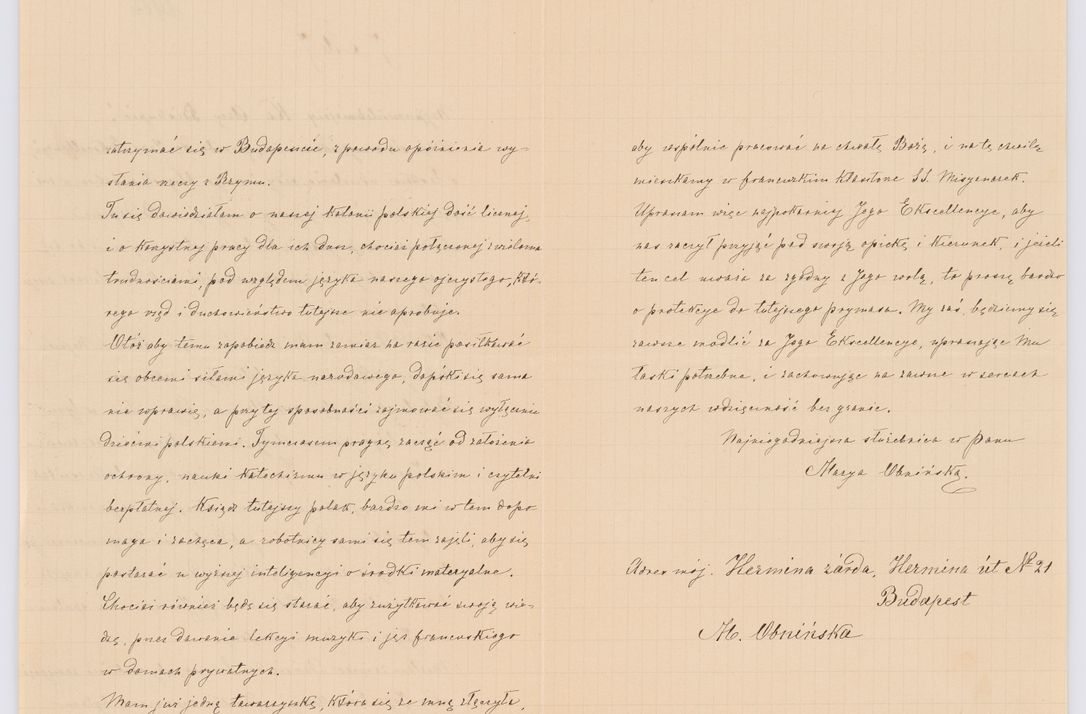 zatrzymać się w Budapeszcie, z powodu opóźnienia wy-
słania rzeczy z Rzymu.
Tu się dowiedziałam o naszej kolonii polskiej dość licznej,
i o korzystnej pracy dla ich dusz, chociaż połączonej z wieloma
trudnościami, pod względem języka naszego ojczystego, któ-
rego rząd i duchowieństwo tutejsze nie aprobuje.
Otóż aby temu zapobiedz mam zamiar na razie posiłkować
się obcemi siłami języka narodowego, dopóki się sama
nie wprawię, a przy tej sposobności zajmować się wyłącznie
dziećmi polskiemi. Tymczasem pragnę zacząć od założenia
ochrony, nauki katechizmu w języku polskim i czytelni
bezpłatnej. Ksiądz tutejszy polak, bardzo mi w tem dopo
maga i zachęca, a robotnicy sami się tem zajęli, aby się
postarać u wyższej inteligencyi o środki materyalne.
Chociaż również będę się starać, aby zużytkować swoją wie-
dzę, przez dawanie lekcyi muzyki i jęz francuskiego
w domach prywatnych.
Mam już jedną towarzyszkę, która się ze mną złączyła,
aby wspólnie pracować na chwałę Bożą, i na tę chwilę
mieszkamy w francuzkim klasztorze SS Misyonarek.
Upraszam więc najpokorniej Jego Ekscellencye, aby
nas raczył przyjąć pod swoją opiekę i kierunek, i jeżeli
ten cel uważa za zgodny z Jego wolą, to proszę bardzo
o protekcye do tutejszego prymasa. My zaś, będziemy się
zawsze modlić za Jego Ekscellencye, upraszając Mu
łaski potrzebne, i zachowując na zawsze w sercach
naszych wdzięczność bez granic.
Najniegodniejsza służebnica w Panu
Marya Obnińska.
Adres mój. Hermina zárda, Hermina út № 21
Budapest
M. Obnińska